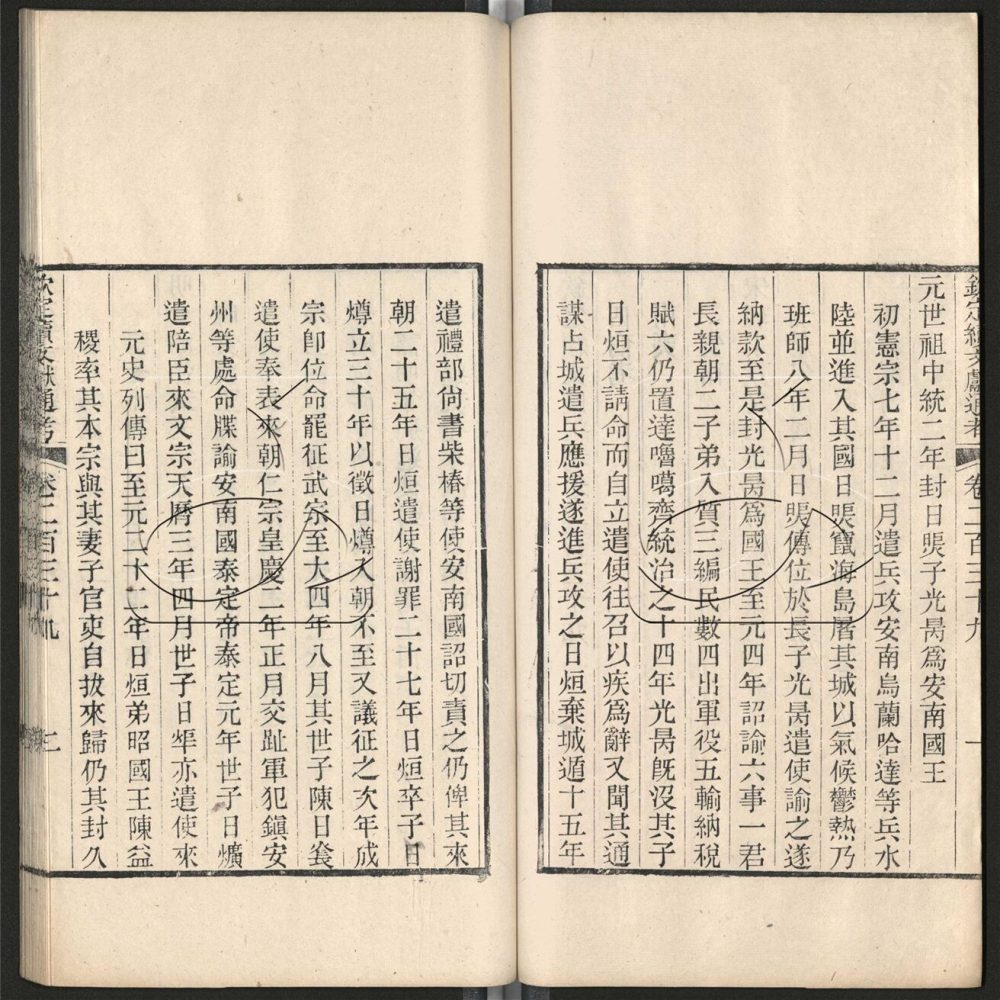 欽定續文獻通考 卷二百三十九
元世祖中統二年封日煚子光昺爲安南國王
初憲宗七年十二月遣兵攻安南烏蘭哈達等兵水
陸並進入其國日煚竄海島屠其城以氣候鬱熱乃
班師八年二月日煚傳位於長子光昺遣使諭之遂
納款至是封光昺爲國王至元四年詔諭六事一君
長親朝二子弟入質三編民數四出軍役五輸納稅
賦六仍置達嚕噶齊統治之十四年光昺旣沒其子
日烜不請命而自立遣使往召以疾爲辭又聞其通
謀占城遣兵應援遂進兵攻之日烜棄城遁十五年
遣禮部尙書柴椿等使安南國詔切責之仍俾其來
朝二十五年日烜遣使謝罪二十七年日烜卒子日
燇立三十年以徵日燇入朝不至又議征之次年成
宗卽位命罷征武宗至大四年八月其世子陳日㷃
遣使奉表來朝仁宗皇慶二年正月交趾軍犯鎭安
州等處命牒諭安南國泰定帝泰定元年世子日爌
遣陪臣來文宗天曆三年四月世子日㷆亦遣使來
元史列傳曰至元二十二年日烜弟昭國王陳益
稷率其本宗與其妻子官吏自拔來歸仍其封久
欽定續文獻通考 卷二百三十九